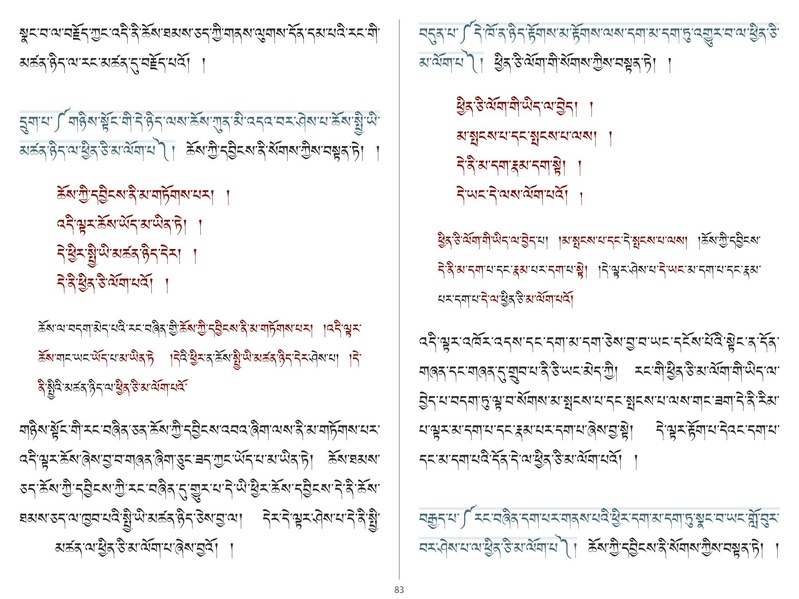 སྣང་བ་ལ་བརྗོད་ཀྱང་འདི་ནི་ཆོས་ཐམས་ཅད་ཀྱི་གནས་ལུགས་དོན་དམ་པའི་རང་གི་
མཚན་ཉིད་ལ་རང་མཚན་དུ་བརྗོད་པའོ། །
དྲུག་པ་༼གཉིས་སྟོང་གི་དེ་ཉིད་ལས་ཆོས་ཀུན་མི་འདའ་བར་ཤེས་པ་ཆོས་སྤྱི་ཡི་
མཚན་ཉིད་ལ་ཕྱིན་ཅི་མ་ལོག་པ༽། ཆོས་ཀྱི་དབྱིངས་ནི་སོགས་ཀྱིས་བསྟན་ཏེ། །
ཆོས་ཀྱི་དབྱིངས་ནི་མ་གཏོགས་པར། །
འདི་ལྟར་ཆོས་ཡོད་མ་ཡིན་ཏེ། །
དེ་ཕྱིར་སྤྱི་ཡི་མཚན་ཉིད་དེར། །
དེ་ནི་ཕྱིན་ཅི་ལོག་པའོ། །
ཆོས་ལ་བདག་མེད་པའི་རང་བཞིན་གྱི་ཆོས་ཀྱི་དབྱིངས་ནི་མ་གཏོགས་པར། །འདི་ལྟར་
ཆོས་གང་ཡང་ཡོད་པ་མ་ཡིན་ཏེ །དེའི་ཕྱིར་ན་ཆོས་སྤྱི་ཡི་མཚན་ཉིད་དེར་ཤེས་པ། །དེ་
ནི་སྤྱིའི་མཚན་ཉིད་ལ་ཕྱིན་ཅི་མ་ལོག་པའོ་
གཉིས་སྟོང་གི་རང་བཞིན་ཅན་ཆོས་ཀྱི་དབྱིངས་འབའ་ཞིག་ལས་ནི་མ་གཏོགས་པར་
འདི་ལྟར་ཆོས་ཞེས་བྱ་བ་གཞན་ཞིག་ཅུང་ཟད་ཀྱང་ཡོད་པ་མ་ཡིན་ཏེ། ཆོས་ཐམས་
ཅད་ཆོས་ཀྱི་དབྱིངས་ཀྱི་རང་བཞིན་དུ་གྱུར་པ་དེ་ཡི་ཕྱིར་ཆོས་དབྱིངས་དེ་ནི་ཆོས་
ཐམས་ཅད་ལ་ཁྱབ་པའི་སྤྱི་ཡི་མཚན་ཉིད་ཅེས་བྱ་ལ། དེར་དེ་ལྟར་ཤེས་པ་དེ་ནི་སྤྱི་
མཚན་ལ་ཕྱིན་ཅི་མ་ལོག་པ་ཞེས་བྱའོ། །
བདུན་པ་༼དེ་ཁོ་ན་ཉིད་རྟོགས་མ་རྟོགས་ལས་དག་མ་དག་ཏུ་འགྱུར་བ་ལ་ཕྱིན་ཅི་
མ་ལོག་པ༽། ཕྱིན་ཅི་ལོག་གི་སོགས་ཀྱིས་བསྟན་ཏེ། །
ཕྱིན་ཅི་ལོག་གི་ཡིད་ལ་བྱེད། །
མ་སྤངས་པ་དང་སྤངས་པ་ལས། །
དེ་ནི་མ་དག་རྣམ་དག་སྟེ། །
དེ་ཡང་དེ་ལས་ལོག་པའོ། །
ཕྱིན་ཅི་ལོག་གི་ཡིད་ལ་བྱེད་པ། །མ་སྤངས་པ་དང་དེ་སྤངས་པ་ལས། །ཆོས་ཀྱི་དབྱིངས་
དེ་ནི་མ་དག་པ་དང་རྣམ་པར་དག་པ་སྟེ། །དེ་ལྟར་ཤེས་པ་དེ་ཡང་མ་དག་པ་དང་རྣམ་
པར་དག་པ་དེ་ལ་ཕྱིན་ཅི་མ་ལོག་པའོ།
འདི་ལྟར་འཁོར་འདས་དང་དག་མ་དག་ཅེས་བྱ་བ་ཡང་དངོས་པོའི་སྟེང་ན་དོན་
གཞན་དང་གཞན་དུ་གྲུབ་པ་ནི་ཅི་ཡང་མེད་ཀྱི། རང་གི་ཕྱིན་ཅི་མ་ལོག་གི་ཡིད་ལ་
བྱེད་པ་བདག་ཏུ་ལྟ་བ་སོགས་མ་སྤངས་པ་དང་སྤངས་པ་ལས་གང་ཟག་དེ་ནི་རིམ་
པ་ལྟར་མ་དག་པ་དང་རྣམ་པར་དག་པ་ཞེས་བྱ་སྟེ། དེ་ལྟར་རྟོག་པ་དེའང་དག་པ་
དང་མ་དག་པའི་དོན་དེ་ལ་ཕྱིན་ཅི་མ་ལོག་པའོ། །
བརྒྱད་པ་༼རང་བཞིན་དག་པར་གནས་པའི་ཕྱིར་དག་མ་དག་ཏུ་སྣང་བ་ཡང་གློ་བུར་
བར་ཤེས་པ་ལ་ཕྱིན་ཅི་མ་ལོག་པ༽། ཆོས་ཀྱི་དབྱིངས་ནི་སོགས་ཀྱིས་བསྟན་ཏེ། །
83